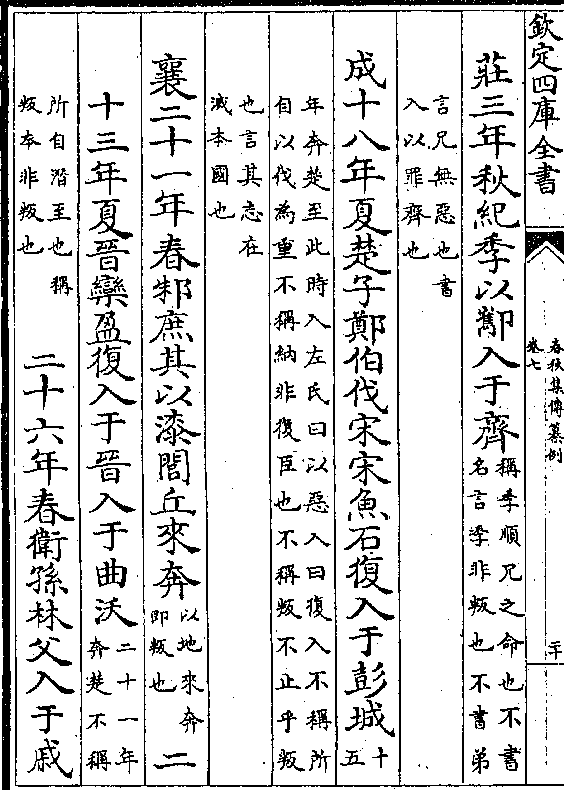 欽定四庫全書
春秋集傳纂例
卷七
二十
莊三年秋紀季以酅入于齊稱季順兄之命也不書
名言季非叛也不書弟
言兄無惡也書
入以罪齊也
成十八年夏楚子鄭伯伐宋宋魚石復入于彭城十
五
年奔楚至此時入左氏曰以惡入曰復入不稱所
自以伐為重不稱納非復臣也不稱叛不止乎叛
也言其志在
滅本國也
襄二十一年春邾庶其以漆閭丘來奔以地來奔
即叛也
二
十三年夏晉欒盈復入于晉入于曲沃二十一年
奔楚不稱
所自潛至也稱
叛本非叛也
二十六年春衛孫林父入于戚